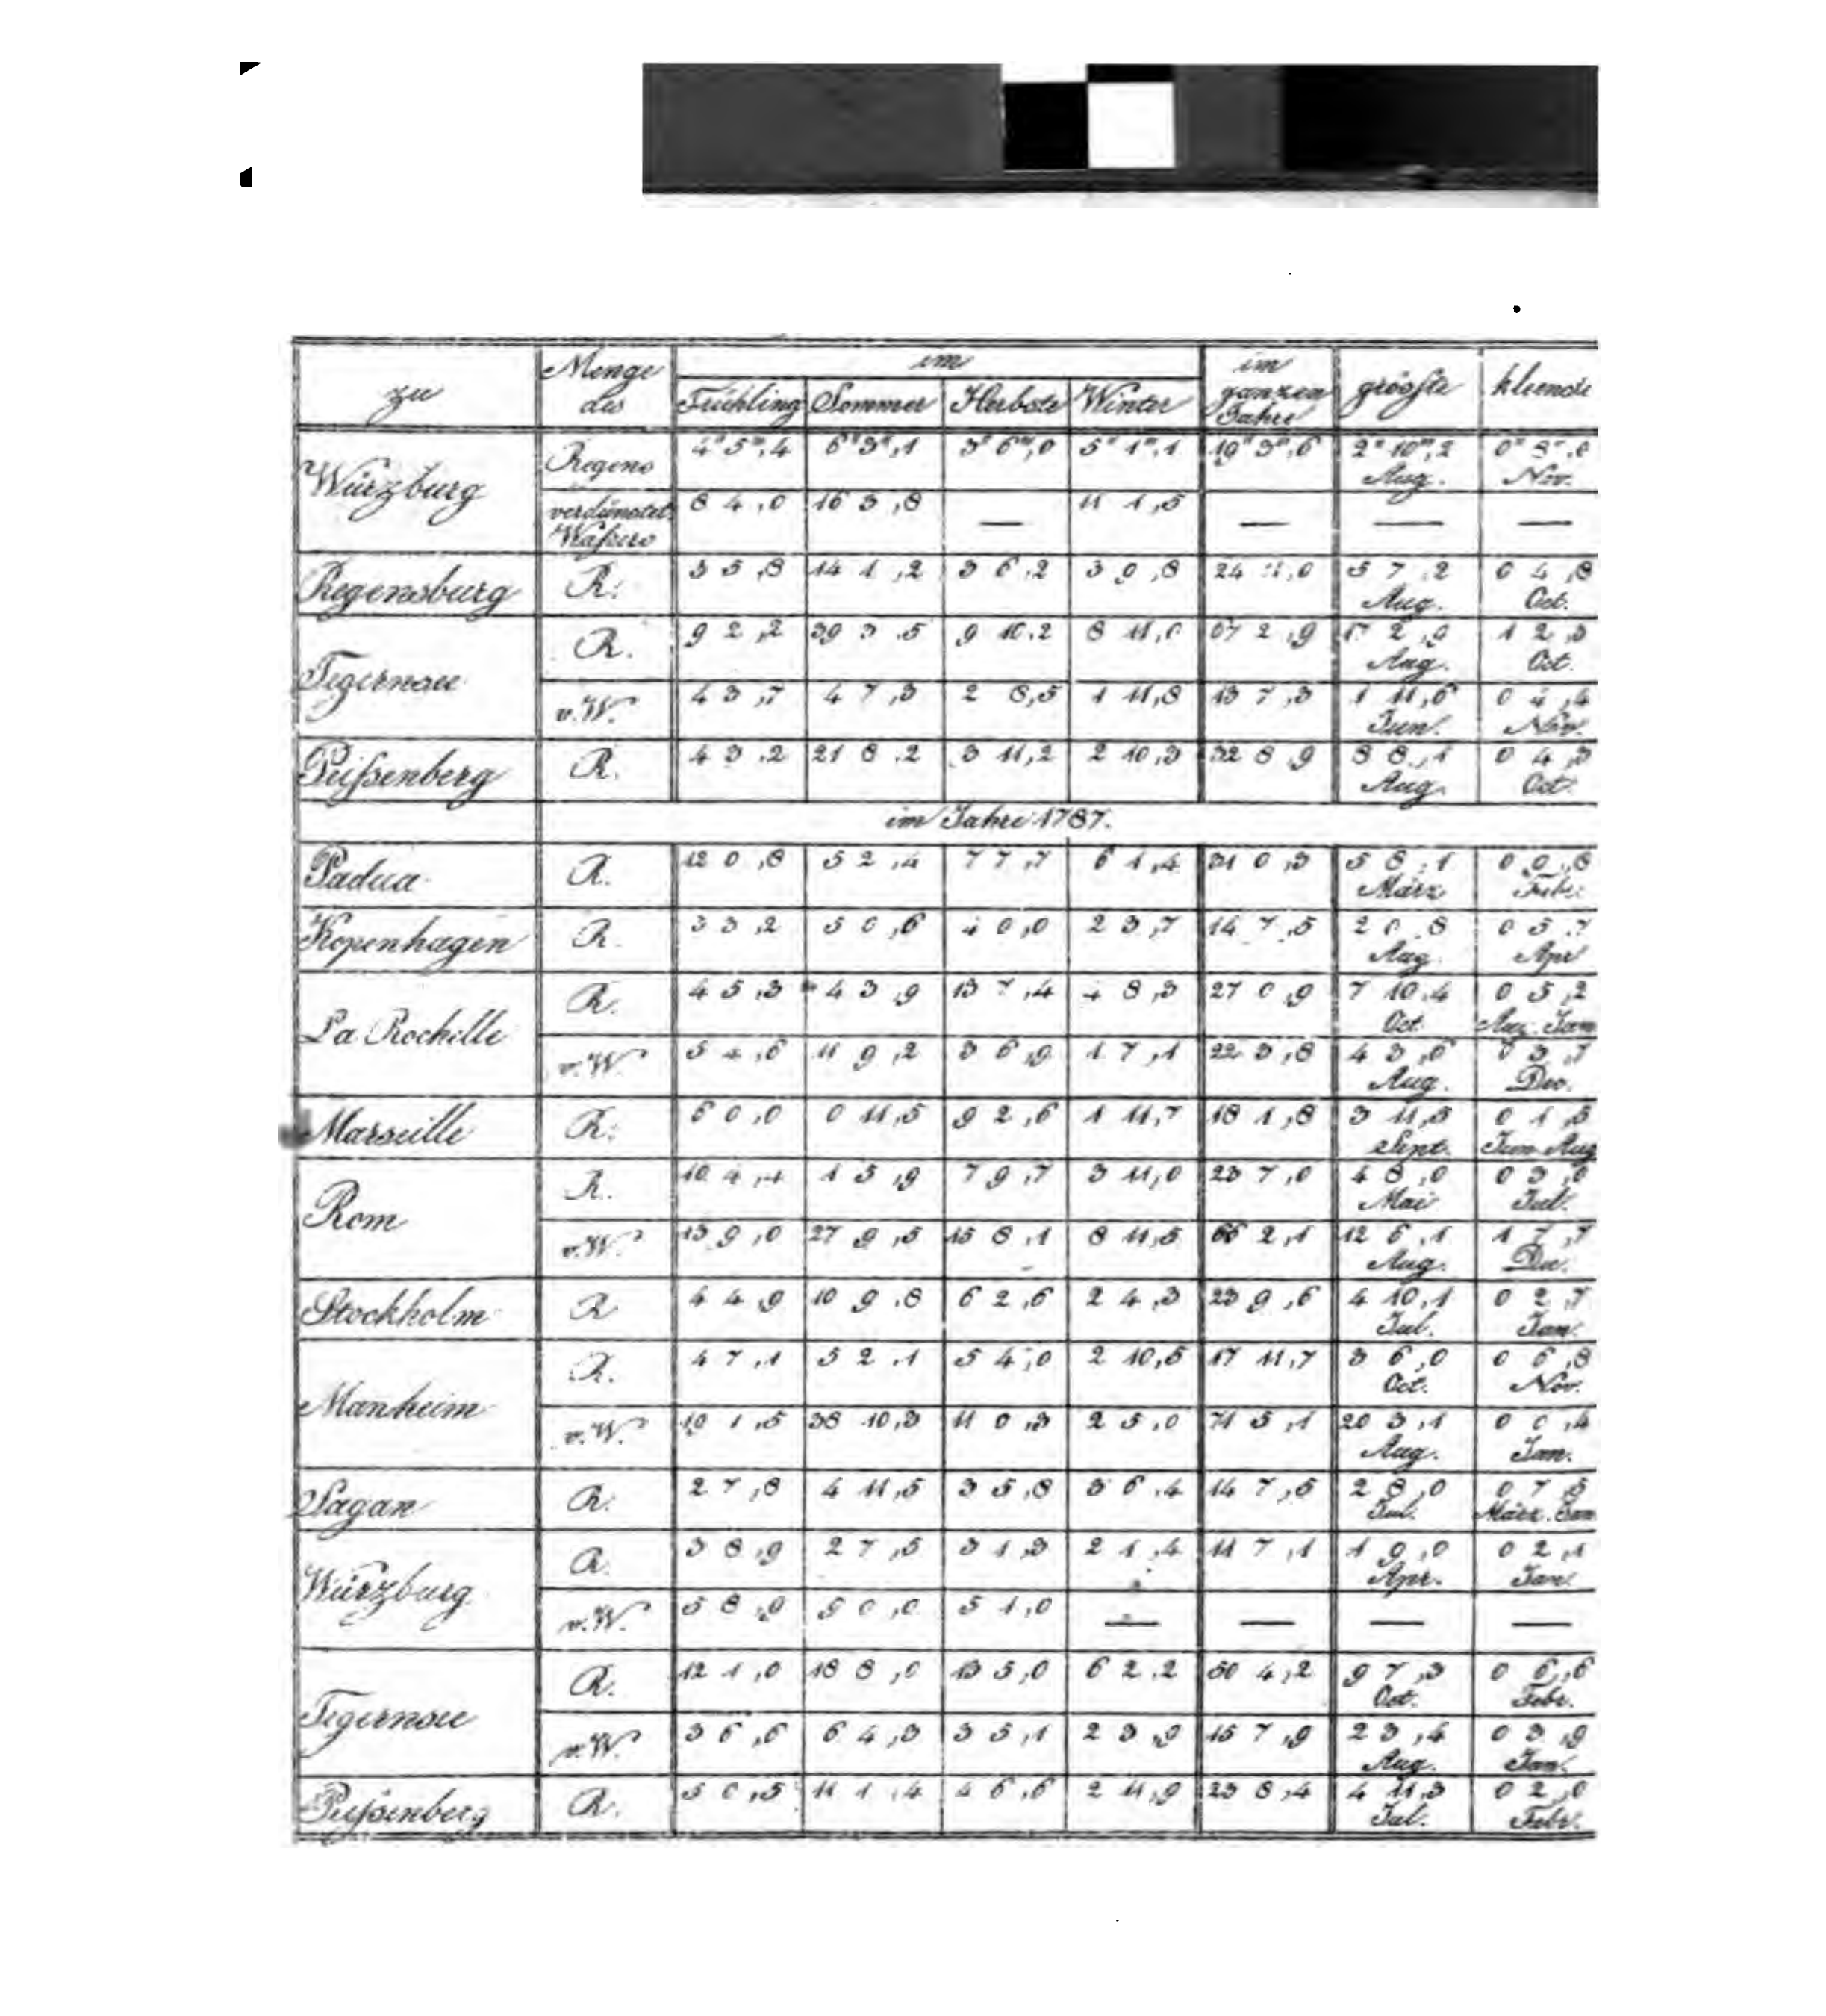 zu | Menge des | im | im ganzen Jahre | grösste | kleinste
Frühling | Sommer | Herbste | Winter
Würzburg | Regens | 4" 5''',4 | 6" 3''',1 | 3" 6''',0 | 5" 1''',1 | 19" 3''',6 | 2" 10''',2 Aug. | Nov.
verdünstet. Waſsers | 8 4,0 | 16 3,8 | — | 11 1,5 | — | — | —
Regensburg | R. | 3 5,8 | 14 1,2 | 3 6,2 | 3 9,8 | 5 7,2 Aug. | 0 4,8 Oct.
Tegernsee | R. | 9 2,2 | 39 3,5 | 9 10,2 | 8 11,0 | 67 2,9 | 17 2,9 Aug. | 1 2,3 Oct.
v. W. | 4 3,7 | 4 7,3 | 2 8,5 | 1 11,8 | 13 7,3 | 1 11,6 Jun. | 0 4,4 Nov.
Peiſsenberg | R. | 4 3,2 | 21 8,2 | 3 11,2 | 2 10,3 | 32 8,9 | 8 8,1 Aug. | 0 4,3 Oct.
im Jahre 1787.
Padua | R. | 12 0,8 | 5 2,4 | 7 7,7 | 6 1,4 | 31 0,3 | 5 8,1 März | 0 0,8 Febr.
Kopenhagen | R. | 3 3,2 | 5 0,6 | 4 0,0 | 2 3,7 | 14 7,5 | 2 0,8 Aug. | 0 5,7 Apr.
La Rochelle | R. | 4 5,3 | 4 3,9 | 13 7,4 | 4 8,3 | 27 0,9 | 7 10,4 Oct. | 0 5,2 Aug. Jan.
v. W. | 5 4,6 | 11 9,2 | 3 6,9 | 1 7,1 | 22 3,8 | 4 3,6 Aug. | 0 3,7 Dec.
Marseille | R. | 6 0,0 | 0 11,5 | 9 2,6 | 1 11,7 | 18 1,8 | 3 11,3 Sept. | 0 1,5 Jun. Aug.
Rom | R. | 10 4,4 | 1 5,9 | 7 9,7 | 3 11,0 | 23 7,0 | 4 8,0 Mai | 0 3,0 Jul.
v. W. | 13 9,0 | 27 9,5 | 15 8,1 | 8 11,5 | 66 2,1 | 12 6,1 Aug. | 1 7,7 Dec.
Stockholm | R. | 4 4,9 | 10 9,8 | 6 2,6 | 2 4,3 | 23 9,6 | 4 10,1 Jul. | 0 2,7 Jan.
Manheim | R. | 4 7,1 | 5 2,1 | 5 4,0 | 2 10,5 | 17 11,7 | 3 6,0 Oct. | 0 6,8 Nov.
v. W. | 19 1,5 | 38 10,3 | 11 0,3 | 2 5,0 | 71 5,1 | 20 3,1 Aug. | 0 0,4 Jan.
Sagan | R. | 2 7,8 | 4 11,5 | 3 5,8 | 3 6,4 | 14 7,5 | 2 8,0 Jul. | 0 7,5 März. Jan.
Würzburg | R. | 3 8,9 | 2 7,5 | 3 1,3 | 2 1,4 | 11 7,1 | 1 9,0 Apr. | 0 2,1 Jan.
v. W. | 5 8,9 | 9 0,0 | 5 1,0 | — | — | — | —
Tegernsee | R. | 12 1,0 | 18 8,0 | 13 5,0 | 6 2,2 | 50 4,2 | 9 7,3 Oct. | 0 6,6 Febr.
v. W. | 3 6,6 | 6 4,3 | 3 5,1 | 2 3,9 | 15 7,9 | 2 3,4 Aug. | 0 3,9 Jan.
Peiſsenberg | R. | 5 0,5 | 11 1,4 | 4 6,6 | 2 11,9 | 23 8,4 | 4 11,3 Jul. | 0 2,0 Febr.